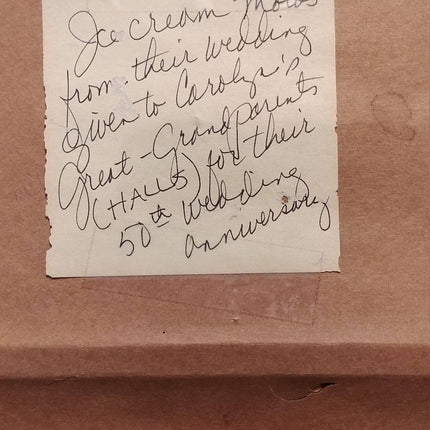 Ice cream molds
from their wedding
given to Carolyn's
Great-Grandparents
(HALLS) for their
50th wedding
anniversary